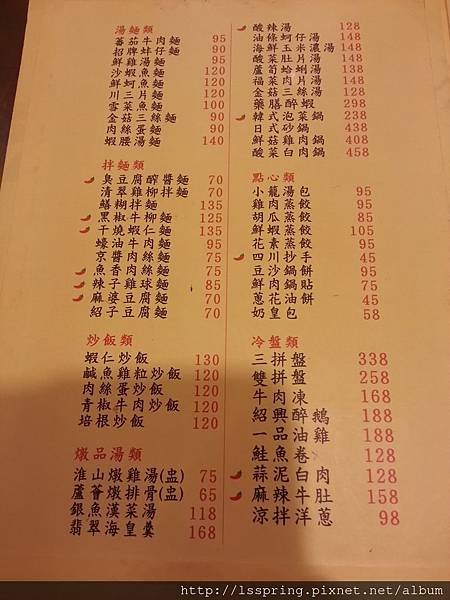 湯麵類
蕃茄牛肉麵 95
招牌蚌仔麵 90
鮮雞湯麵 95
沙蝦魚麵 120
鮮蚵魚麵 120
川三片麵 120
雪菜魚麵 100
金菇三絲麵 90
肉絲蛋麵 90
蝦腰湯麵 140
拌麵類
臭豆腐醡醬麵 70
清翠雞柳拌麵 70
鱔糊拌麵 135
黑椒牛柳麵 125
干燒蝦仁麵 135
蠔油牛肉麵 95
京醬肉絲麵 75
魚香肉絲麵 75
辣子雞球麵 85
麻婆豆腐麵 70
紹子豆腐麵 70
炒飯類
蝦仁炒飯 130
鹹魚雞粒炒飯 120
肉絲蛋炒飯 120
青椒牛肉炒飯 120
培根炒飯 120
燉品湯類
淮山燉雞湯(盅) 75
蘆薈燉排骨(盅) 65
銀魚漢菜湯 118
翡翠海皇羹 168
酸辣湯 128
油條蚵仔湯 148
海鮮玉米濃湯 148
酸菜肚片湯 148
蘆筍蛤蜊湯 138
福菜肉片湯 148
金菇三絲湯 128
藥膳醉蝦 298
韓式泡菜鍋 238
日式砂鍋 438
鮮菇雞肉鍋 408
酸菜白肉鍋 458
點心類
小籠湯包 95
雞肉蒸餃 95
胡瓜蒸餃 85
鮮蝦蒸餃 105
花素蒸餃 95
四川抄手 45
豆沙鍋餅 95
鮮肉鍋貼 75
蔥花油餅 45
奶皇包 58
冷盤類
三拼盤 338
雙拼盤 258
牛肉凍 168
紹興醉鵝 188
一品油雞 188
鮭魚卷 128
蒜泥白肉 128
麻辣牛肚 158
涼拌洋蔥 98
http://lsspring.pixnet.net/album